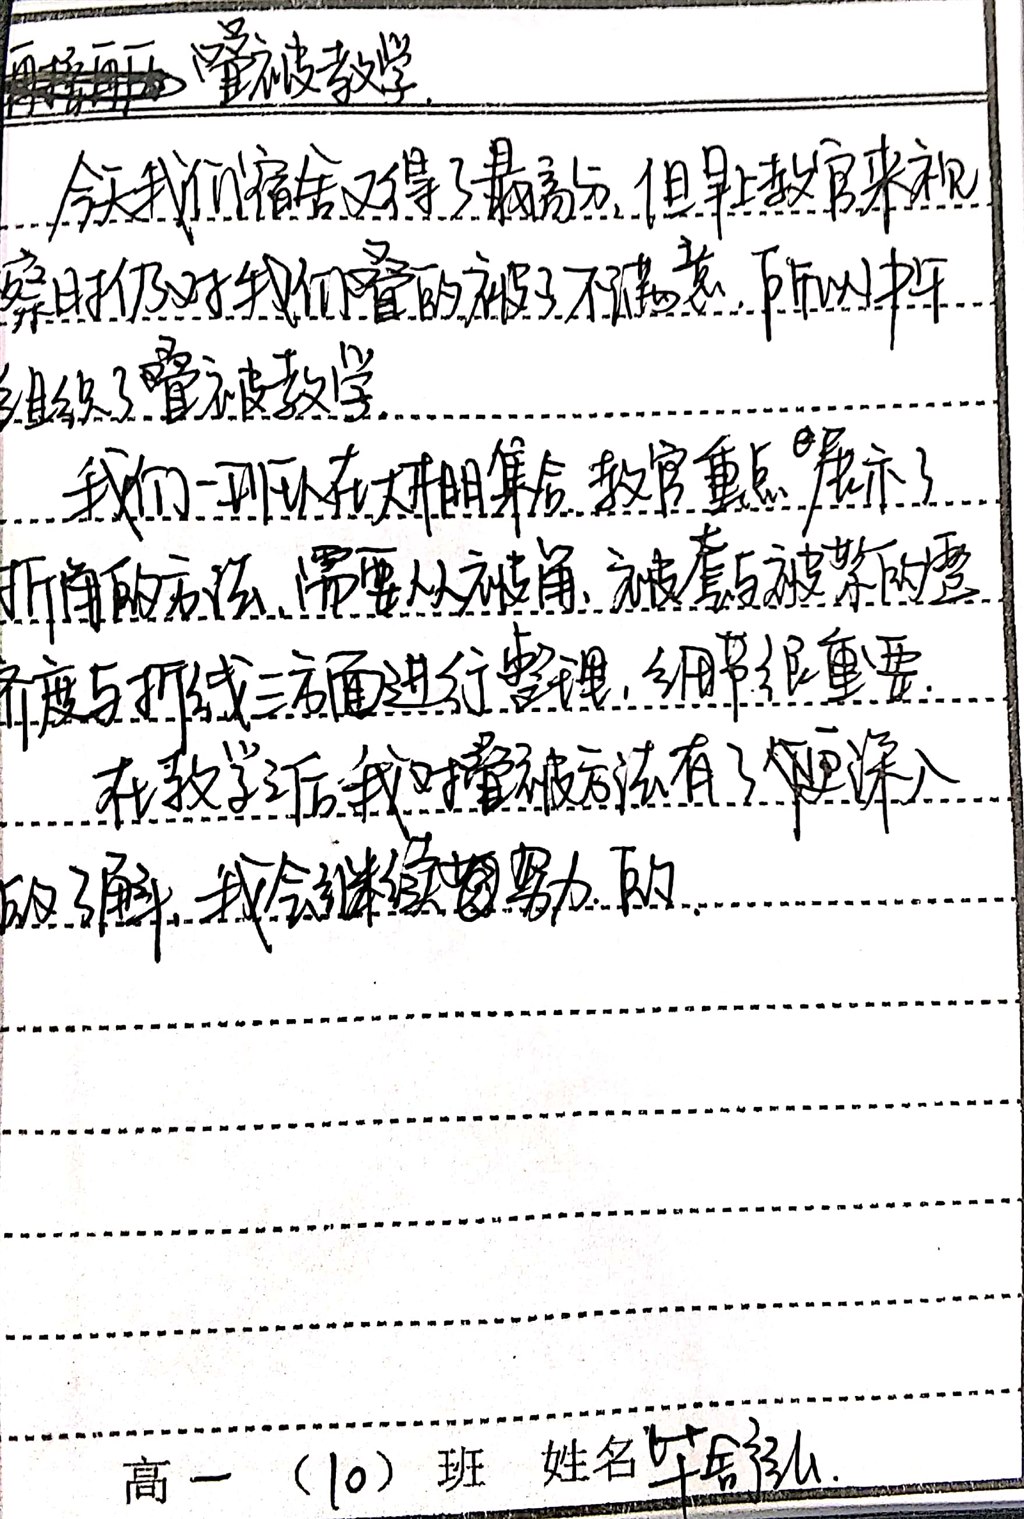 叠被教学.
今天我们宿舍又得了最高分,但早上教官来视
察时仍对我们叠的被子不满意,所以中午
组织了叠被教学.
我们一班队在大棚集合,教官重点展示了
折角的方法,需要从被角、被套与被絮的整
齐度与折线三方面进行整理,细节很重要.
在教学之后我对叠被方法有了更深入
的了解,我会继续努力的.
高一 (10) 班 姓名